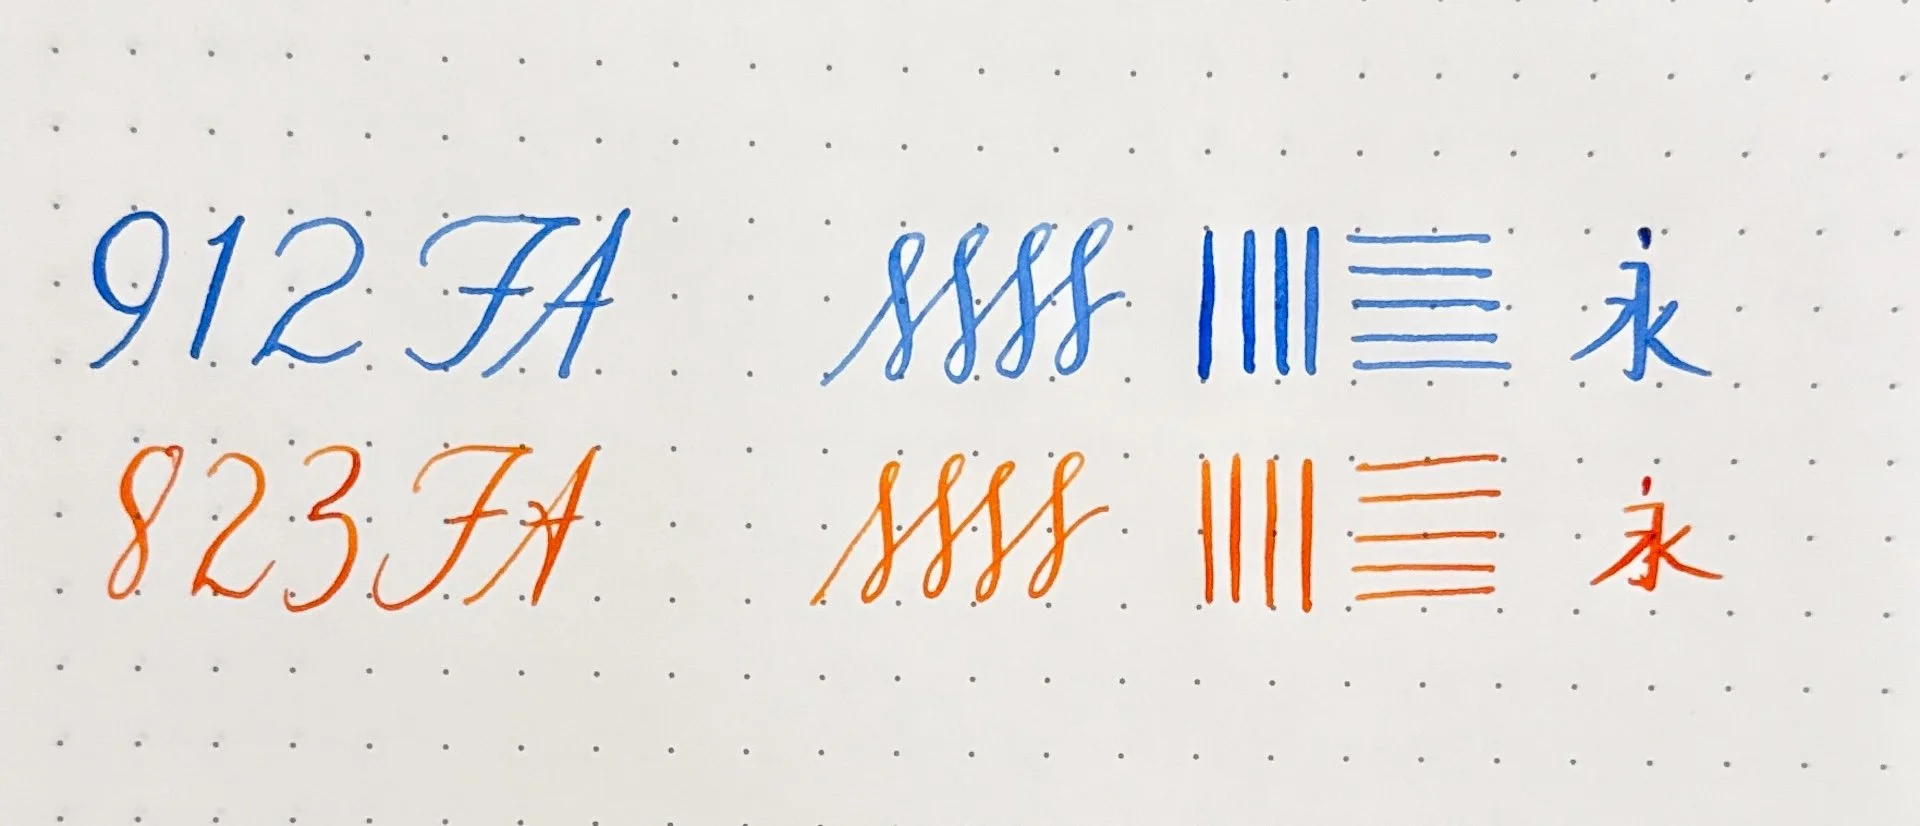 912 FA 永
823 FA 永